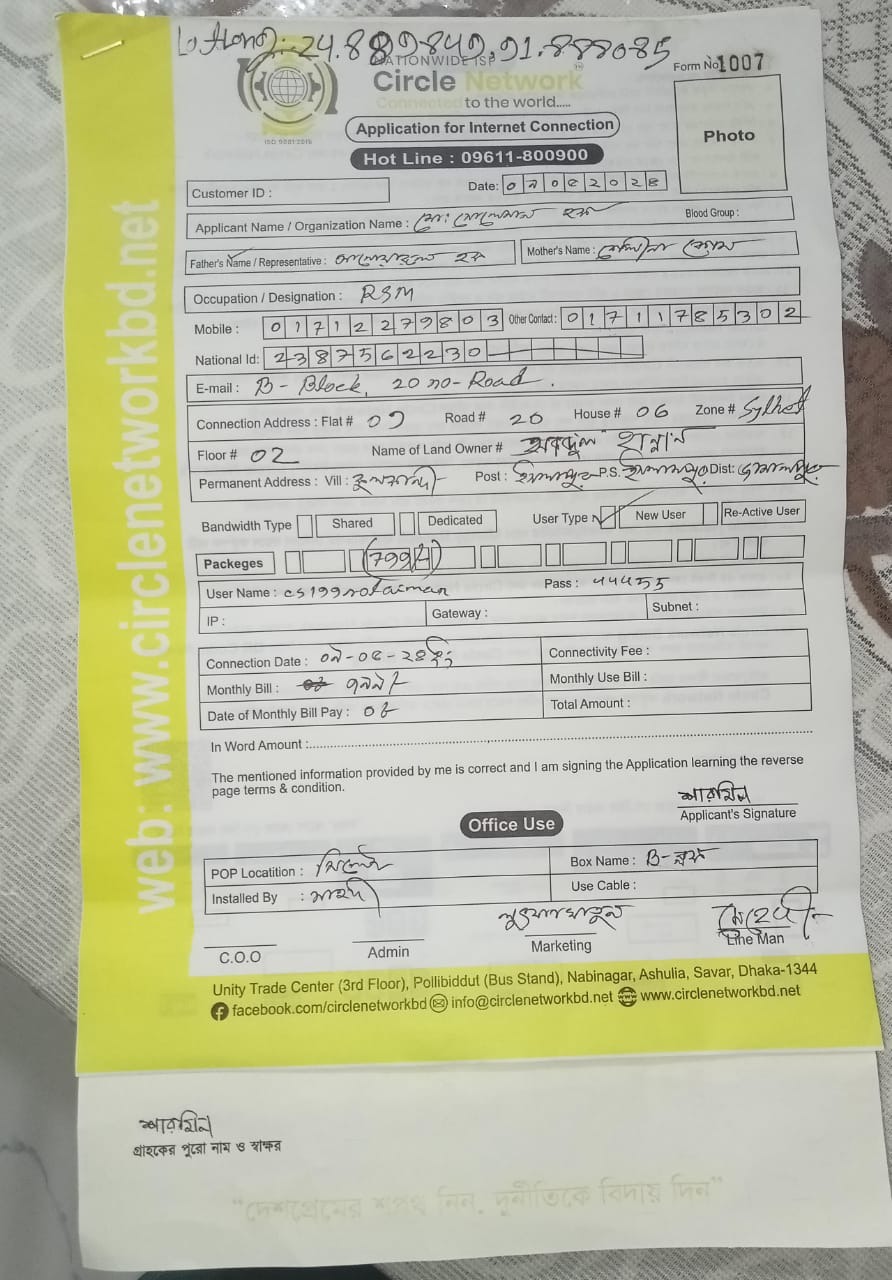 NATIONWIDE ISP
Form No: 1007
Circle Network
Connected to the world.....
ISO 9001:2015
Application for Internet Connection
Photo
Hot Line : 09611-800900
Customer ID :
Date:
Applicant Name / Organization Name : মো: হক
Blood Group :
Father's Name / Representative : হক
Mother's Name :
Occupation / Designation : RSM
Mobile : 01712279803 Other Contact : 01711785302
National Id: 2387562230
E-mail : B- Block, 20 no- Road.
Connection Address : Flat # Road # 20 House # 06 Zone # Sylhet
Floor # 02 Name of Land Owner # আবদুল হান্নান
Permanent Address : Vill : Post : ইসলামপুর P.S. ইসলামপুর Dist: জামালপুর
Bandwidth Type Shared Dedicated User Type New User Re-Active User
Packeges 799/-
User Name : Pass :
IP : Gateway : Subnet :
Connection Date : Connectivity Fee :
Monthly Bill : ৭৯৯/- Monthly Use Bill :
Date of Monthly Bill Pay : Total Amount :
In Word Amount :
The mentioned information provided by me is correct and I am signing the Application learning the reverse
page terms & condition.
শারমিন
Applicant's Signature
Office Use
POP Locatition : সিলেট Box Name : B-ব্লক
Installed By : Use Cable :
C.O.O Admin Marketing Line Man
Unity Trade Center (3rd Floor), Pollibiddut (Bus Stand), Nabinagar, Ashulia, Savar, Dhaka-1344
facebook.com/circlenetworkbd info@circlenetworkbd.net www.circlenetworkbd.net
web: www.circlenetworkbd.net
শারমিন
গ্রাহকের পুরো নাম ও স্বাক্ষর
“দেশপ্রেমের শপথ নিন, দুর্নীতিকে বিদায় দিন”